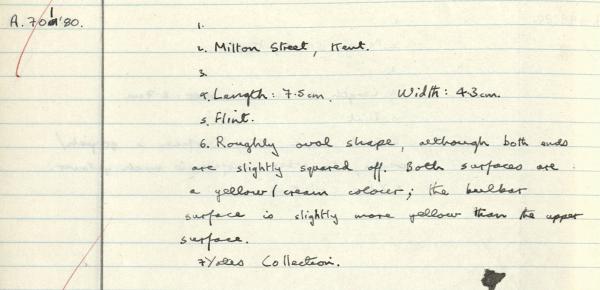 A. 70a '80. 1.
2. Milton Street, Kent.
3.
4. Length: 7.5cm. Width: 4.3cm.
5. Flint.
6. Roughly oval shape, although both ends
are slightly squared off. Both surfaces are
a yellow/cream colour; the bulbar
surface is slightly more yellow than the upper
surface.
7 Collection.